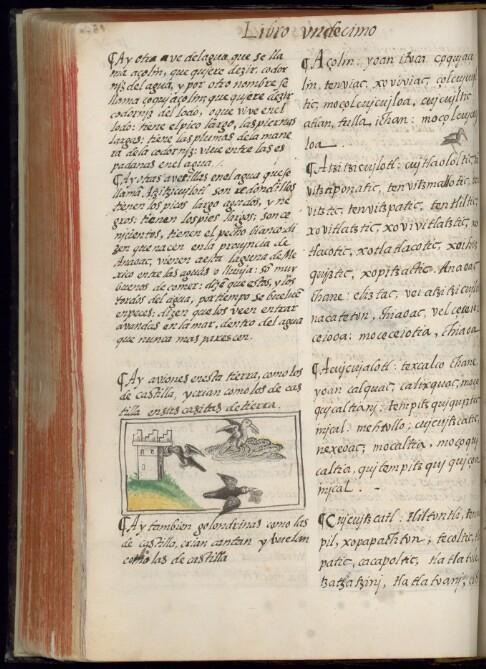 Libro vndecimo
¶Ay otra ave del agua que se lla
ma açolin, que quiere dezir, codor
niz del agua, y por otro nombre se
llama coquiaçolin; que quiere dezir
codorniz del lodo, o que vive en el
lodo: tiene el pico largo, las piernas
largas; tiene las plumas de la mane
ra de la codorniz: viue entre las es
padanas en el agua.
¶Ay otras avecillas en el agua que se
llama, Atzitzicuylotl son redondillos
tienen los picos largo agudos, y ne
gros: tienen los pies largos: son ce
nicientos, tienen el pecho blanco: di
zen que nacen en la prouincia de
Anaoac, vienen a esta laguna de Me
xico entre las aguas o lluuia: son muy
buenos de comer: dize que estos, y los
tordos del agua, por tiempo se buelue
en peces: dizen que los veen entrar
avandas en la mar, dentro del agua
que nunca mas parescen.
¶Ay aviones en esta tierra, como los
de castilla, y crian como los de cas
tilla en sus casitas de tierra.
¶Ay tambien golondrinas como las
de castilla, crian cantan y buelan
como las de castilla
¶Açolin: yoan ituca coquiaço
lin, tenviac, xoviviac,
tic, moçolcuicuiloa, cuicuiltic
atlan, tulla, ichan: moçolcuicui
loa.
¶Atzitzicuilotl:
vitzaponatic, tenvitzmallotic,
vitztic: tenvitzpatic, tentliltic
xovitlatztic, xovivitlatztic,
tlacotic, xotlatlacotic,
quiztic, xopitzactic. Anaoac
chane:
nacatetvn, Anaoac,
ceiooa: moceceiotia,
¶Acuicuialotl: texcalco chane
yoan calquac; calixquac,
qujcaltianj: tempitz
injcal: mehtollo; cuicuiticatic
nexeoac; mocaltia, moçoqui
caltia, qui tempitz qui
injcal.
¶Cujcuitzcatl: tliltontli,
pil, xopapachtvn; tecoltic,
patic, cacapoltic,
tzatzatzinj, tlatlatoanj,